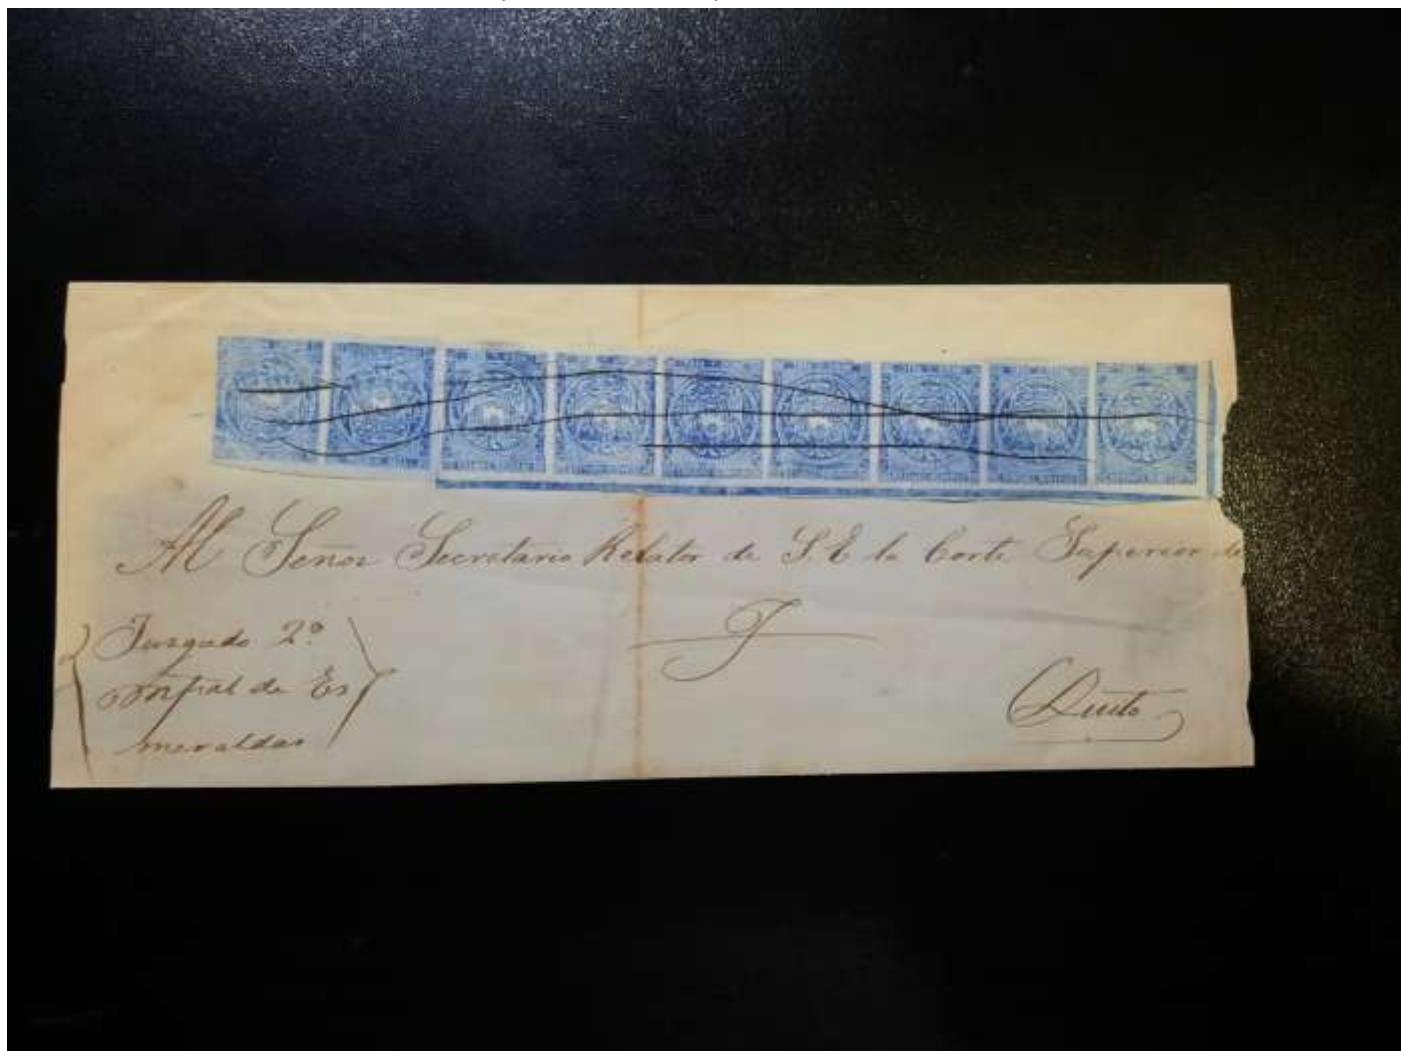 Al Señor Secretario Relator de S. E. la Corte Superior de
J
Juzgado 2º
de Es
meraldas
Quito